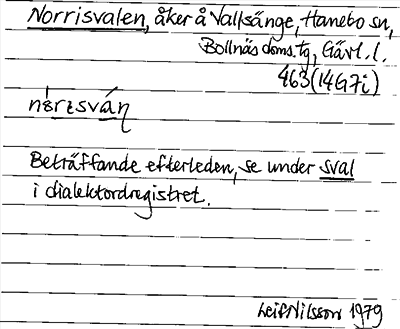 Norrisvalen, åker å Vallsänge, Hanebo sn,
Bollnäs doms.tg, Gävl. l.
463 (14G7i)
Beträffande efterleden, se under sval
i dialektordregistret.
Leif Nilsson 1979